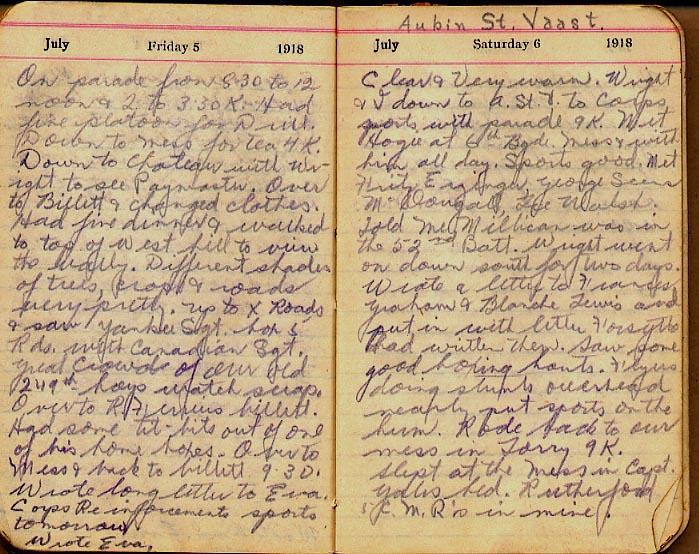 July Friday 5 1918
On parade from 8:30 to 12
noon & 2 to 3:30 K. Had
fine platoon for Drill.
Down to mess for tea 4 K.
Down to Chateau with Wr-
ight to see Paymaster. Over
to Billett & changed clothes.
Had fine dinner & walked
to top of West hill to view
the vally. Different shades
of trees, crops & roads
very pretty. Up to X Roads
& saw Yankee Sgt. box 5
Rds. with Canadian Sgt.
Great Crowds of our old
249th boys watch scrap.
Over to R. billett.
Had some tit-bits out of one
of his home boxes. Over to
Mess & back to billett 9:30.
Wrote long letter to Eva.
Corps Reinforcements sports
tomorrow
Wrote Eva.
Aubin St. Vaast.
July Saturday 6 1918
Clear & Very warm. Wright
& I down to A. St. V. to Corps
sports with parade 9 K. Met
Hogue at 6th Bgde. Mess & with
him all day. Sports good. Met
Fritz George
McDougall, Joe Walsh.
Told me Millican was in
the 52nd Batt. Wright went
on down south for two days.
Wrote a letter to Frances
Graham & Blanche Lewis and
put in with letter Forsythe
had written them. Saw some
good boxing bouts. Flyers
doing stunts overhead
nearly put sports on the
bum. Rode back to our
mess in Lorry 9 K.
Slept at the Mess in Capt.
bed. Rutherford
C.M.R's in mine.